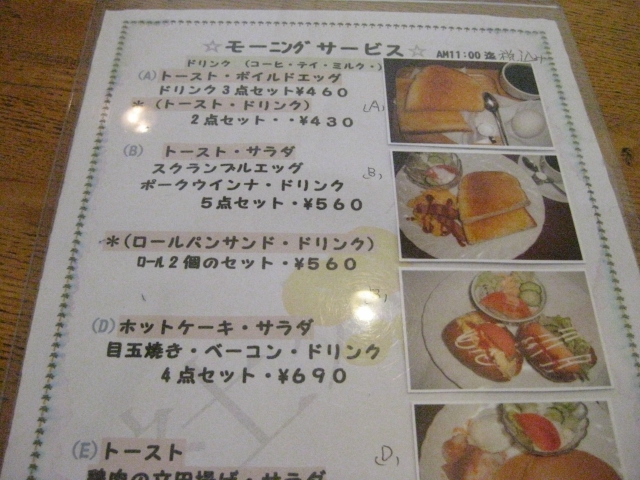 ☆モーニングサービス☆ AM11:00迄 税込
ドリンク (コーヒ・テイ・ミルク・)
(A) トースト・ボイルドエッグ
ドリンク3点セット¥460
* (トースト・ドリンク)
2点セット・・¥430
(A)
(B) トースト・サラダ
スクランブルエッグ
ポークウインナ・ドリンク
5点セット・¥560
(B)
*(ロールパンサンド・ドリンク)
ロール2個のセット・¥560
(D) ホットケーキ・サラダ
目玉焼き・ベーコン・ドリンク
4点セット・¥690
(E) トースト
鶏肉の立田揚げ・サラダ
(D)